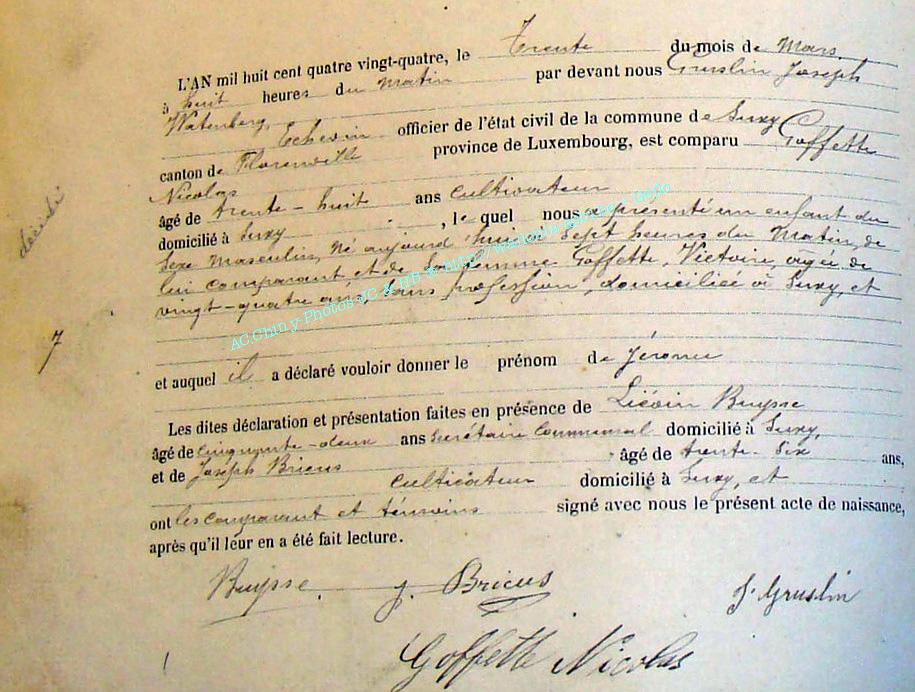 L'AN mil huit cent quatre vingt-quatre, le Trente du mois de Mars,
à huit heures du Matin par devant nous Gruslin Joseph
Watenberg, Echevin officier de l'état civil de la commune de Suxy
canton de Florenville province de Luxembourg, est comparu Goffette
Nicolas
âgé de trente-huit ans cultivateur
domicilié à Suxy, le quel nous a présenté un enfant du
Sexe Masculin, Né aujourd'hui à Sept heures du Matin, de
lui comparant, et de Sa femme Goffette, Victoire, agée de
vingt-quatre ans, sans profession, domiciliée à Suxy, et
7
et auquel il a déclaré vouloir donner le prénom de Jérome
Les dites déclaration et présentation faites en présence de Liévin Buysse
âgé de cinquante-deux ans Secrétaire Communal domicilié à Suxy,
et de Joseph Bricus âgé de trente-Six ans,
cultivateur domicilié à Suxy, et
ont les comparant et témoins signé avec nous le présent acte de naissance,
après qu'il leur en a été fait lecture.
Buysse. J. Bricus J. Gruslin
Goffette Nicolas
AC.Chiny-Photos JC &